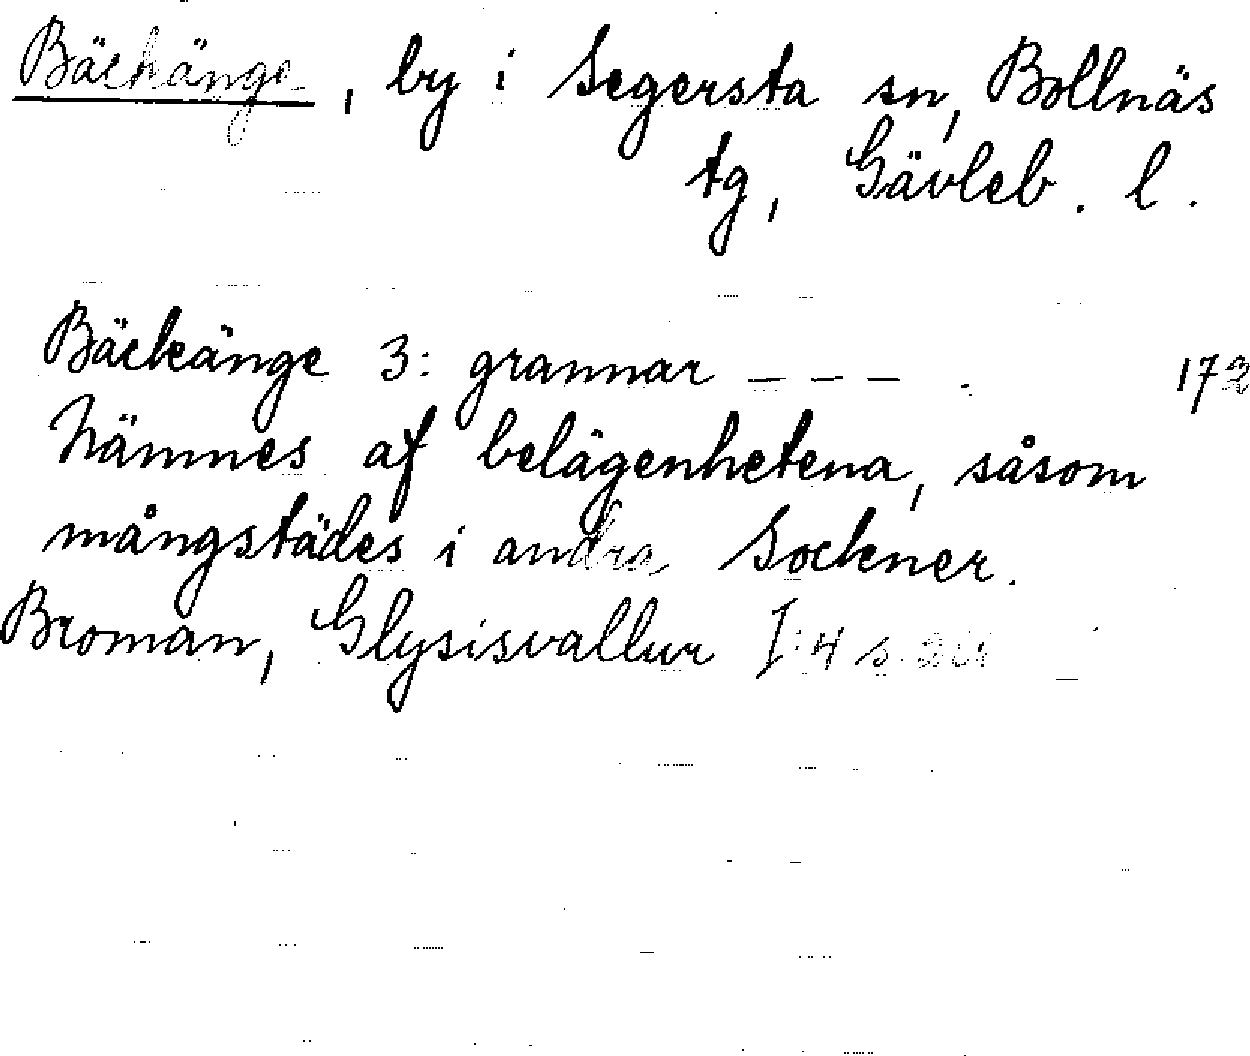 Bäckänge, by i Segersta sn, Bollnäs
tg, Gävleb. l.
Bäckänge 3: grannar – – – . 172
Nämnes af belägenhetena, såsom
mångstädes i andra Sockner.
Broman, Glysisvallur I:4 s.